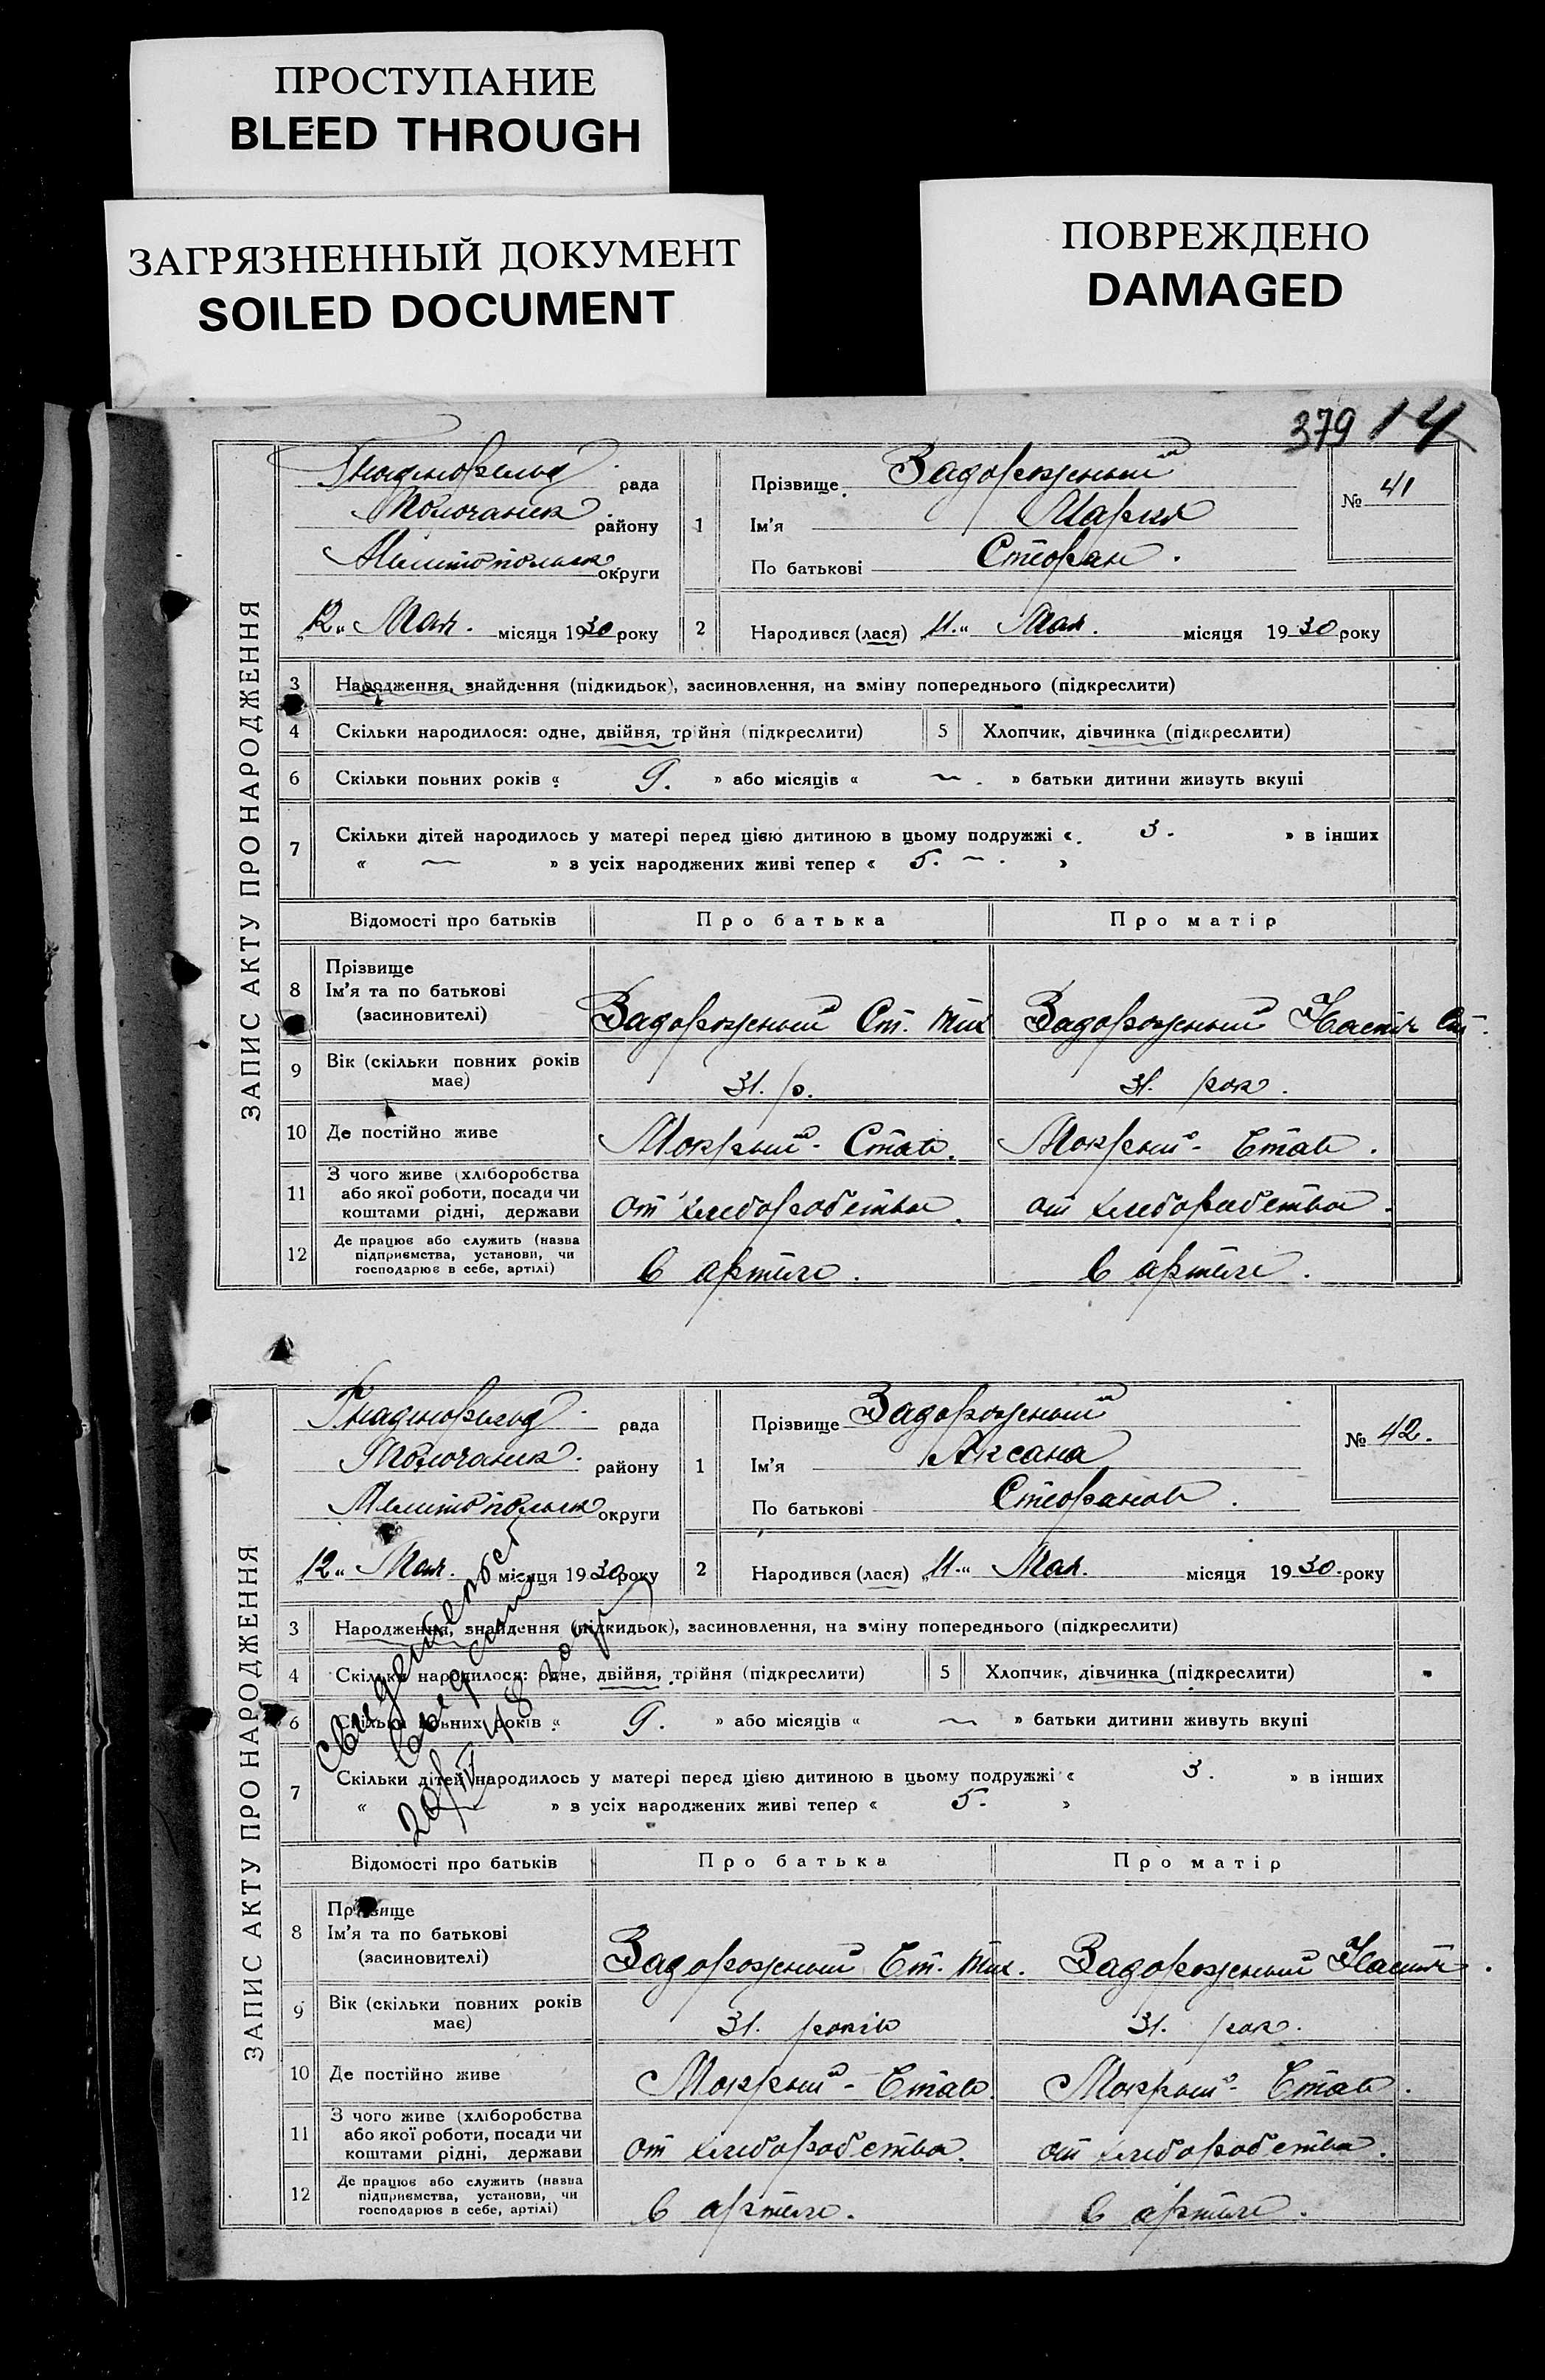 ПРОСТУПАНИЕ
BLEED THROUGH
ЗАГРЯЗНЕННЫЙ ДОКУМЕНТ
SOILED DOCUMENT
ПОВРЕЖДЕНО
DAMAGED
379 14
ЗАПИС АКТУ ПРО НАРОДЖЕННЯ
Гнаденфельд рада
Молочанск району
Мелитопольск округи
„12“ Мая. місяця 1930 року
1 Прізвище Задорожный
Ім'я Мария
По батькові Стефан.
№ 41
2 Народився (лася) „11.“ Мая. місяця 1930 року
3 Народження, знайдення (підкидьок), засиновлення, на зміну попереднього (підкреслити)
4 Скільки народилося: одне, двійня, трійня (підкреслити) 5 Хлопчик, дівчинка (підкреслити)
6 Скільки повних років « 9. » або місяців « — . » батьки дитини живуть вкупі
7 Скільки дітей народилось у матері перед цією дитиною в цьому подружжі « 3. » в інших
« — » з усіх народжених живі тепер « 5. — . »
Відомості про батьків Про батька Про матір
8 Прізвище
Ім'я та по батькові
(засиновителі)
Задорожный Ст. Тих Задорожный Настя
9 Вік (скільки повних років
має)
31. р. 31. рок.
10 Де постійно живе Мокрый - Став. Мокрый - Став.
11 З чого живе (хліборобства
або якої роботи, посади чи
коштами рідні, держави
от хлеборобства. от хлеборобства.
12 Де працює або служить (назва
підприємства, установи, чи
господарює в себе, артілі)
в артели. в артели.
ЗАПИС АКТУ ПРО НАРОДЖЕННЯ
Гнаденфельд рада
Молочанск. району
Мелитопольск округи
„12“ Мая. місяця 1930 року
1 Прізвище Задорожный
Ім'я Аксана
По батькові Стефанов.
№ 42.
2 Народився (лася) „11.“ Мая. місяця 1930. року
3 Народження, знайдення (підкидьок), засиновлення, на зміну попереднього (підкреслити)
4 Скільки народилося: одне, двійня, трійня (підкреслити) 5 Хлопчик, дівчинка (підкреслити)
6 Скільки повних років « 9. » або місяців « — » батьки дитини живуть вкупі
7 Скільки дітей народилось у матері перед цією дитиною в цьому подружжі « 3. » в інших
« — » з усіх народжених живі тепер « 5. »
Свидетельст
выдано
20/IV 48 году
Відомості про батьків Про батька Про матір
8 Прізвище
Ім'я та по батькові
(засиновителі)
Задорожный Ст. Тих. Задорожный Настя.
9 Вік (скільки повних років
має)
31. років 31. рок.
10 Де постійно живе Мокрый - Став. Мокрый - Став.
11 З чого живе (хліборобства
або якої роботи, посади чи
коштами рідні, держави
от хлеборобства. от хлеборобства.
12 Де працює або служить (назва
підприємства, установи, чи
господарює в себе, артілі)
в артели. в артели.